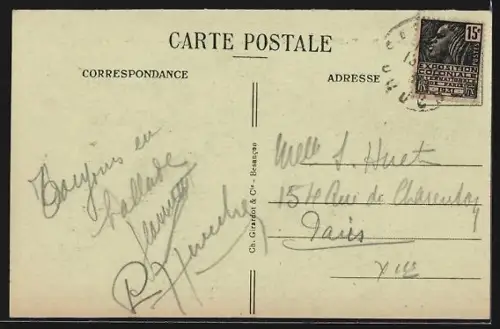 CARTE POSTALE
CORRESPONDANCE
ADRESSE
15c
EXPOSITION
COLONIALE
INTERNATIONALE
PARIS 1931
Toujours en
ballade
Jeannette
Ch. Girardot & Cie - Besançon
Melle S. Huet
154 Rue de Charenton
Paris
XIIe